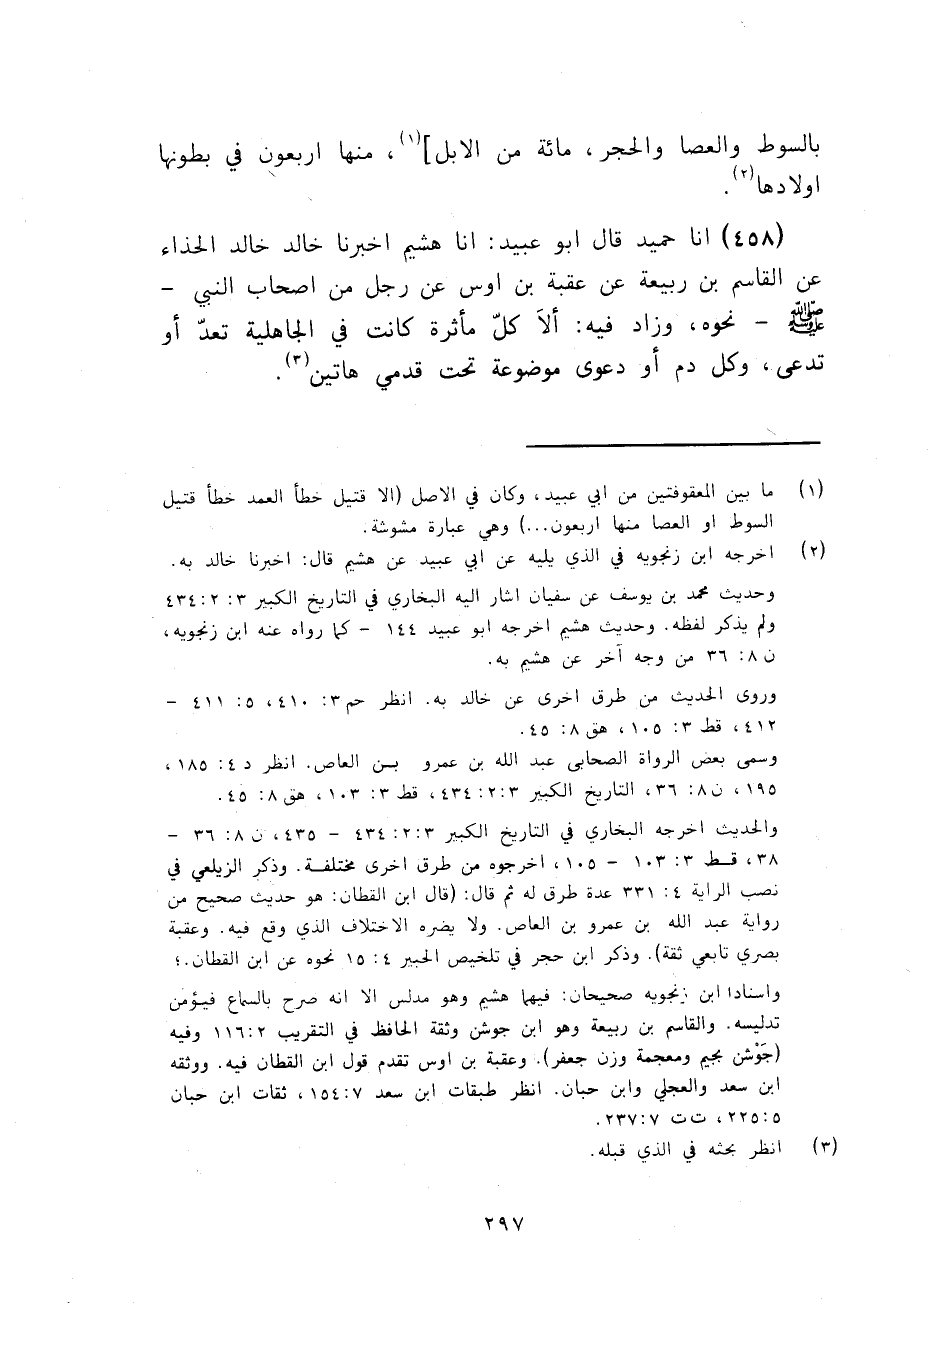 بالسوط والعصا والحجر، مائة من الابل](١)، منها اربعون في بطونها
اولادها(٢).
(٤٥٨) انا حميد قال ابو عبيد: انا هشيم اخبرنا خالد خالد الحذاء
عن القاسم بن ربيعة عن عقبة بن اوس عن رجل من اصحاب النبي -
ﷺ - نحوه، وزاد فيه: ألاَ كلّ مأثرة كانت في الجاهلية تعدّ أو
تدعى، وكل دم أو دعوى موضوعة تحت قدمي هاتين(٣).
(١) ما بين المعقوفتين من ابي عبيد، وكان في الاصل (الا قتيل خطأ العمد خطأ قتيل
السوط او العصا منها اربعون...) وهي عبارة مشوشة.
(٢) اخرجه ابن زنجويه في الذي يليه عن ابي عبيد عن هشيم قال: اخبرنا خالد به.
وحديث محمد بن يوسف عن سفيان اشار اليه البخاري في التاريخ الكبير ٣: ٢: ٤٣٤
ولم يذكر لفظه. وحديث هشيم اخرجه ابو عبيد ١٤٤ - كما رواه عنه ابن زنجويه،
ن ٨: ٣٦ من وجه آخر عن هشيم به.
وروى الحديث من طرق اخرى عن خالد به. انظر حم ٣: ٤١٠، ٥: ٤١١ -
٤١٢، قط ٣: ١٠٥، هق ٨: ٤٥.
وسمى بعض الرواة الصحابى عبد الله بن عمرو بـن العاص. انظر د ٤: ١٨٥،
١٩٥، ن ٨: ٣٦، التاريخ الكبير ٣: ٢: ٤٣٤، قط ٣: ١٠٣، هق ٨: ٤٥.
والحديث اخرجه البخاري في التاريخ الكبير ٣: ٢: ٤٣٤ - ٤٣٥، ن ٨: ٣٦ -
٣٨، قـط ٣: ١٠٣ - ١٠٥، اخرجوه من طرق اخرى مختلفـة. وذكر الزيلعي في
نصب الراية ٤: ٣٣١ عدة طرق له ثم قال: (قال ابن القطان: هو حديث صحيح من
رواية عبد الله بن عمرو بن العاص. ولا يضره الاختلاف الذي وقع فيه. وعقبة
بصري تابعي ثقة). وذكر ابن حجر في تلخيص الحبير ٤: ١٥ نحوه عن ابن القطان.؛
واسنادا ابن زنجويه صحيحان: فيهما هشيم وهو مدلس الا انه صرح بالسماع فيؤمن
تدليسه. والقاسم بن ربيعة وهو ابن جوشن وثقة الحافظ في التقريب ٢: ١١٦ وفيه
(جَوْشن بجيم ومعجمة وزن جعفر). وعقبة بن اوس تقدم قول ابن القطان فيه. ووثقه
ابن سعد والعجلي وابن حبان. انظر طبقات ابن سعد ٧: ١٥٤، ثقات ابن حبان
٥: ٢٢٥، ت ت ٧: ٢٣٧.
(٣) انظر بحثه في الذي قبله.
٢٩٧